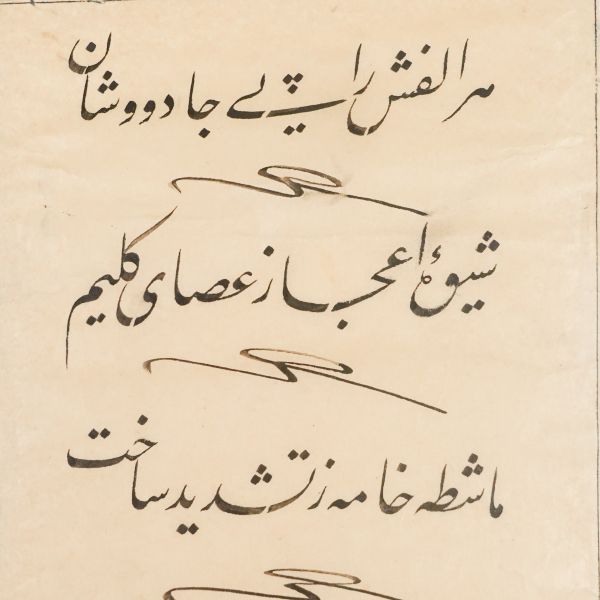 هر الفش را پی جادووشان
شیوهٔ اعجاز عصای کلیم
ماشطه خامه ز تشدید ساخت